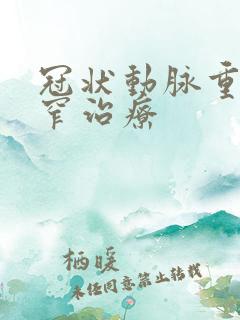 冠状動脉重
窄治療
栖暖
未任同意禁止转载